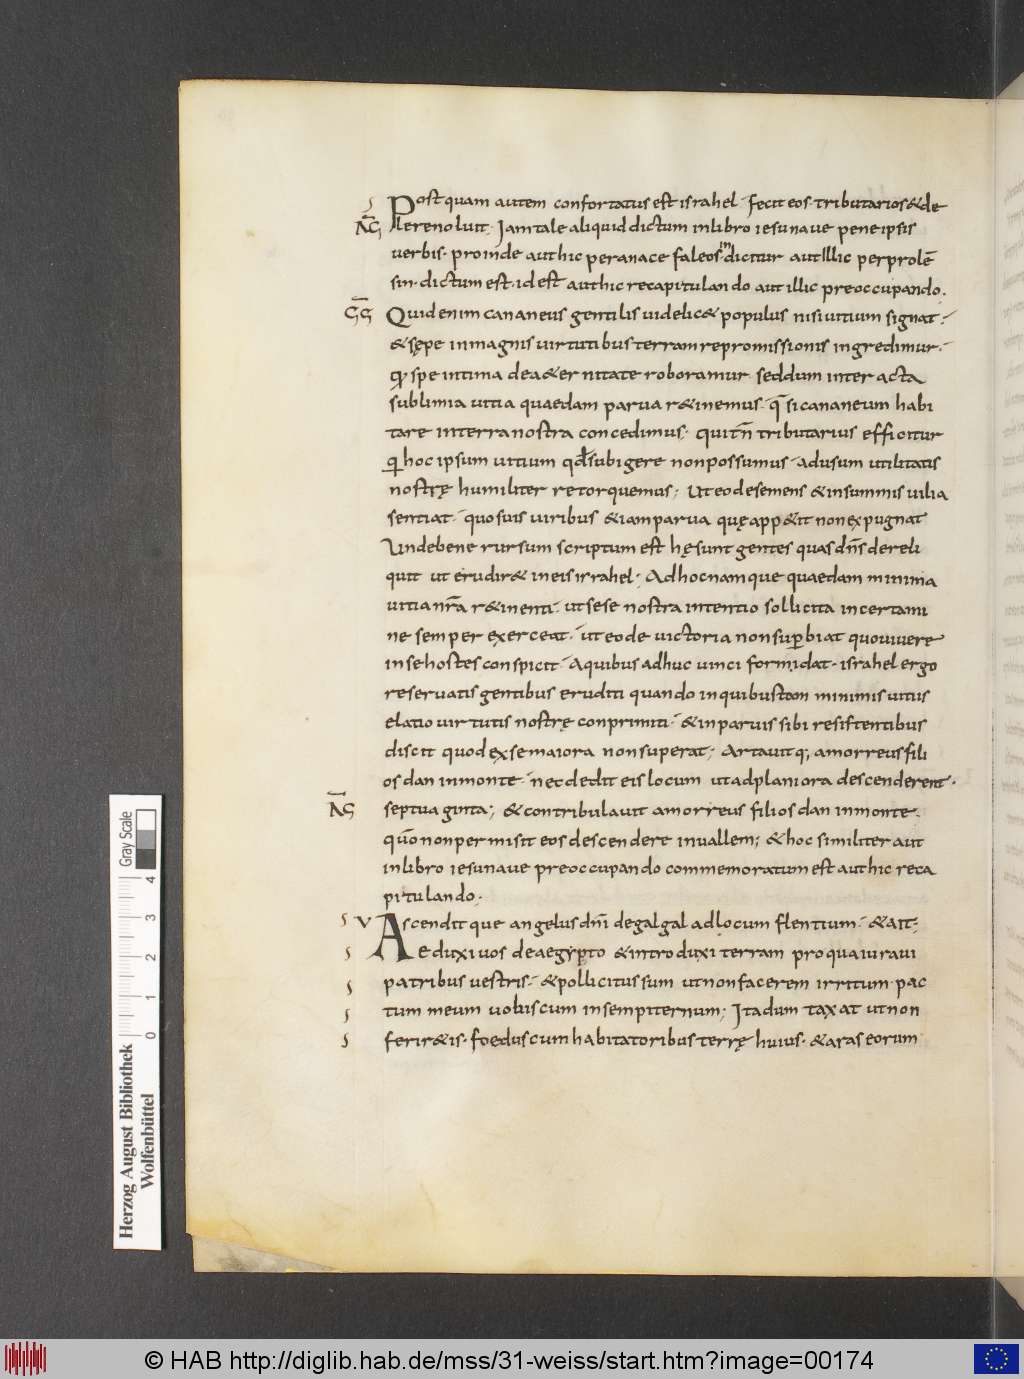 Postquam autem confortatus est israhel fecit eos tributarios & de
lere noluit. Iam tale aliquid dictum in libro iesu naue pene ipsis
uerbis. proinde aut hic per anace faleosin dicitur aut illic per prolē
sin. dictum est. id est aut hic recapitulando aut illic preoccupando.
Quid enim cananeus gentilis uidelic& populus nisi uitium signat.
& sępe in magnis uirtutibus terram repromissionis ingredimur.
spe intima de a&ernitate roboramur. sed dum inter acta
sublimia uitia quaedam parua r&inemus. q̄si cananeum habi
tare in terra nostra concedimus. qui tn̄ tributarius efficitur
hoc ipsum uitium qđ subigere non possumus ad usum utilitatis
nostrę humiliter retorquemus; Ut eo de se mens & in summis uilia
sentiat. quo suis uiribus & iam parua quę app&it non expugnat
Unde bene rursum scriptum est hę sunt gentes quas dn̄s dereli
quit ut erudir& in eis isrrahel. Ad hoc namque quaedam minima
uitia nr̄a r&inenti. ut se se nostra intentio sollicita in certami
ne semper exerceat. ut eo de uictoria non supbiat quo uiuere
in se hostes conspicit. A quibus adhuc uinci formidat. israhel ergo
reseruatis gentibus eruditi quando in quibusdam minimis uitiis
elatio uirtutis nostrę conprimiti. & in paruis sibi resistentibus
discit quod ex se maiora non superat; Artauitq; amorreus fili
os dan in monte. nec dedit eis locum ut ad planiora descenderent.
septuaginta; & contribulauit amorreus filios dan in monte.
qūo non permisit eos descendere in uallem; & hoc similiter aut
in libro iesu naue preoccupando commemoratum est aut hic reca
pitulando.
V Ascenditque angelus dn̄i de galgal ad locum flentium. & ait;
Eduxi uos de aegypto & introduxi terram pro qua iuraui
patribus uestris. & pollicitus sum ut non facerem irritum pac
tum meum uobiscum in sempiternum; Ita dumtaxat ut non
ferir&is. foedus cum habitatoribus terrę huius. & aras eorum
Gray Scale
4 3 2 1 0
Herzog August Bibliothek
Wolfenbüttel
© HAB http://diglib.hab.de/mss/31-weiss/start.htm?image=00174